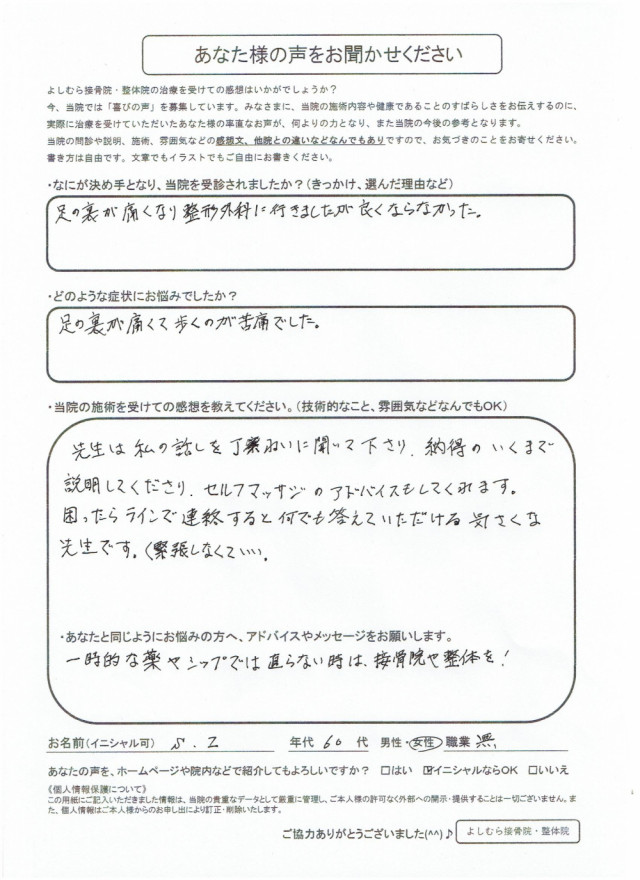 あなた様の声をお聞かせください
よしむら接骨院・整体院の治療を受けての感想はいかがでしょうか？
今、当院では「喜びの声」を募集しています。みなさまに、当院の施術内容や健康であることのすばらしさをお伝えするのに、
実際に治療を受けていただいたあなた様の率直なお声が、何よりの力となり、また当院の今後の参考となります。
当院の問診や説明、施術、雰囲気などの感想文、他院との違いなどなんでもありですので、お気づきのことをお寄せください。
書き方は自由です。文章でもイラストでもご自由にお書きください。
・なにが決め手となり、当院を受診されましたか？（きっかけ、選んだ理由など）
足の裏が痛くなり整形外科に行きましたが良くならなかった。
・どのような症状にお悩みでしたか？
足の裏が痛くて歩くのが苦痛でした。
・当院の施術を受けての感想を教えてください。（技術的なこと、雰囲気などなんでもOK）
先生は私の話しを丁寧に聞いて下さり、納得のいくまで
説明してくださり、セルフマッサジのアドバイスもしてくれます。
困ったらラインで連絡すると何でも答えていただける気さくな
先生です。（緊張しなくていい。
・あなたと同じようにお悩みの方へ、アドバイスやメッセージをお願いします。
一時的な薬やシップでは直らない時は、接骨院や整体を！
お名前（イニシャル可） S．Z 年代 60 代 男性・女性 職業
あなたの声を、ホームページや院内などで紹介してもよろしいですか？ □はい ☑イニシャルならOK □いいえ
《個人情報保護について》
この用紙にご記入いただきました情報は、当院の貴重なデータとして厳重に管理し、ご本人様の許可なく外部への開示・提供することは一切ございません。ま
た、個人情報はご本人様からのお申し出により訂正・削除いたします。
ご協力ありがとうございました(^^)♪ よしむら接骨院・整体院